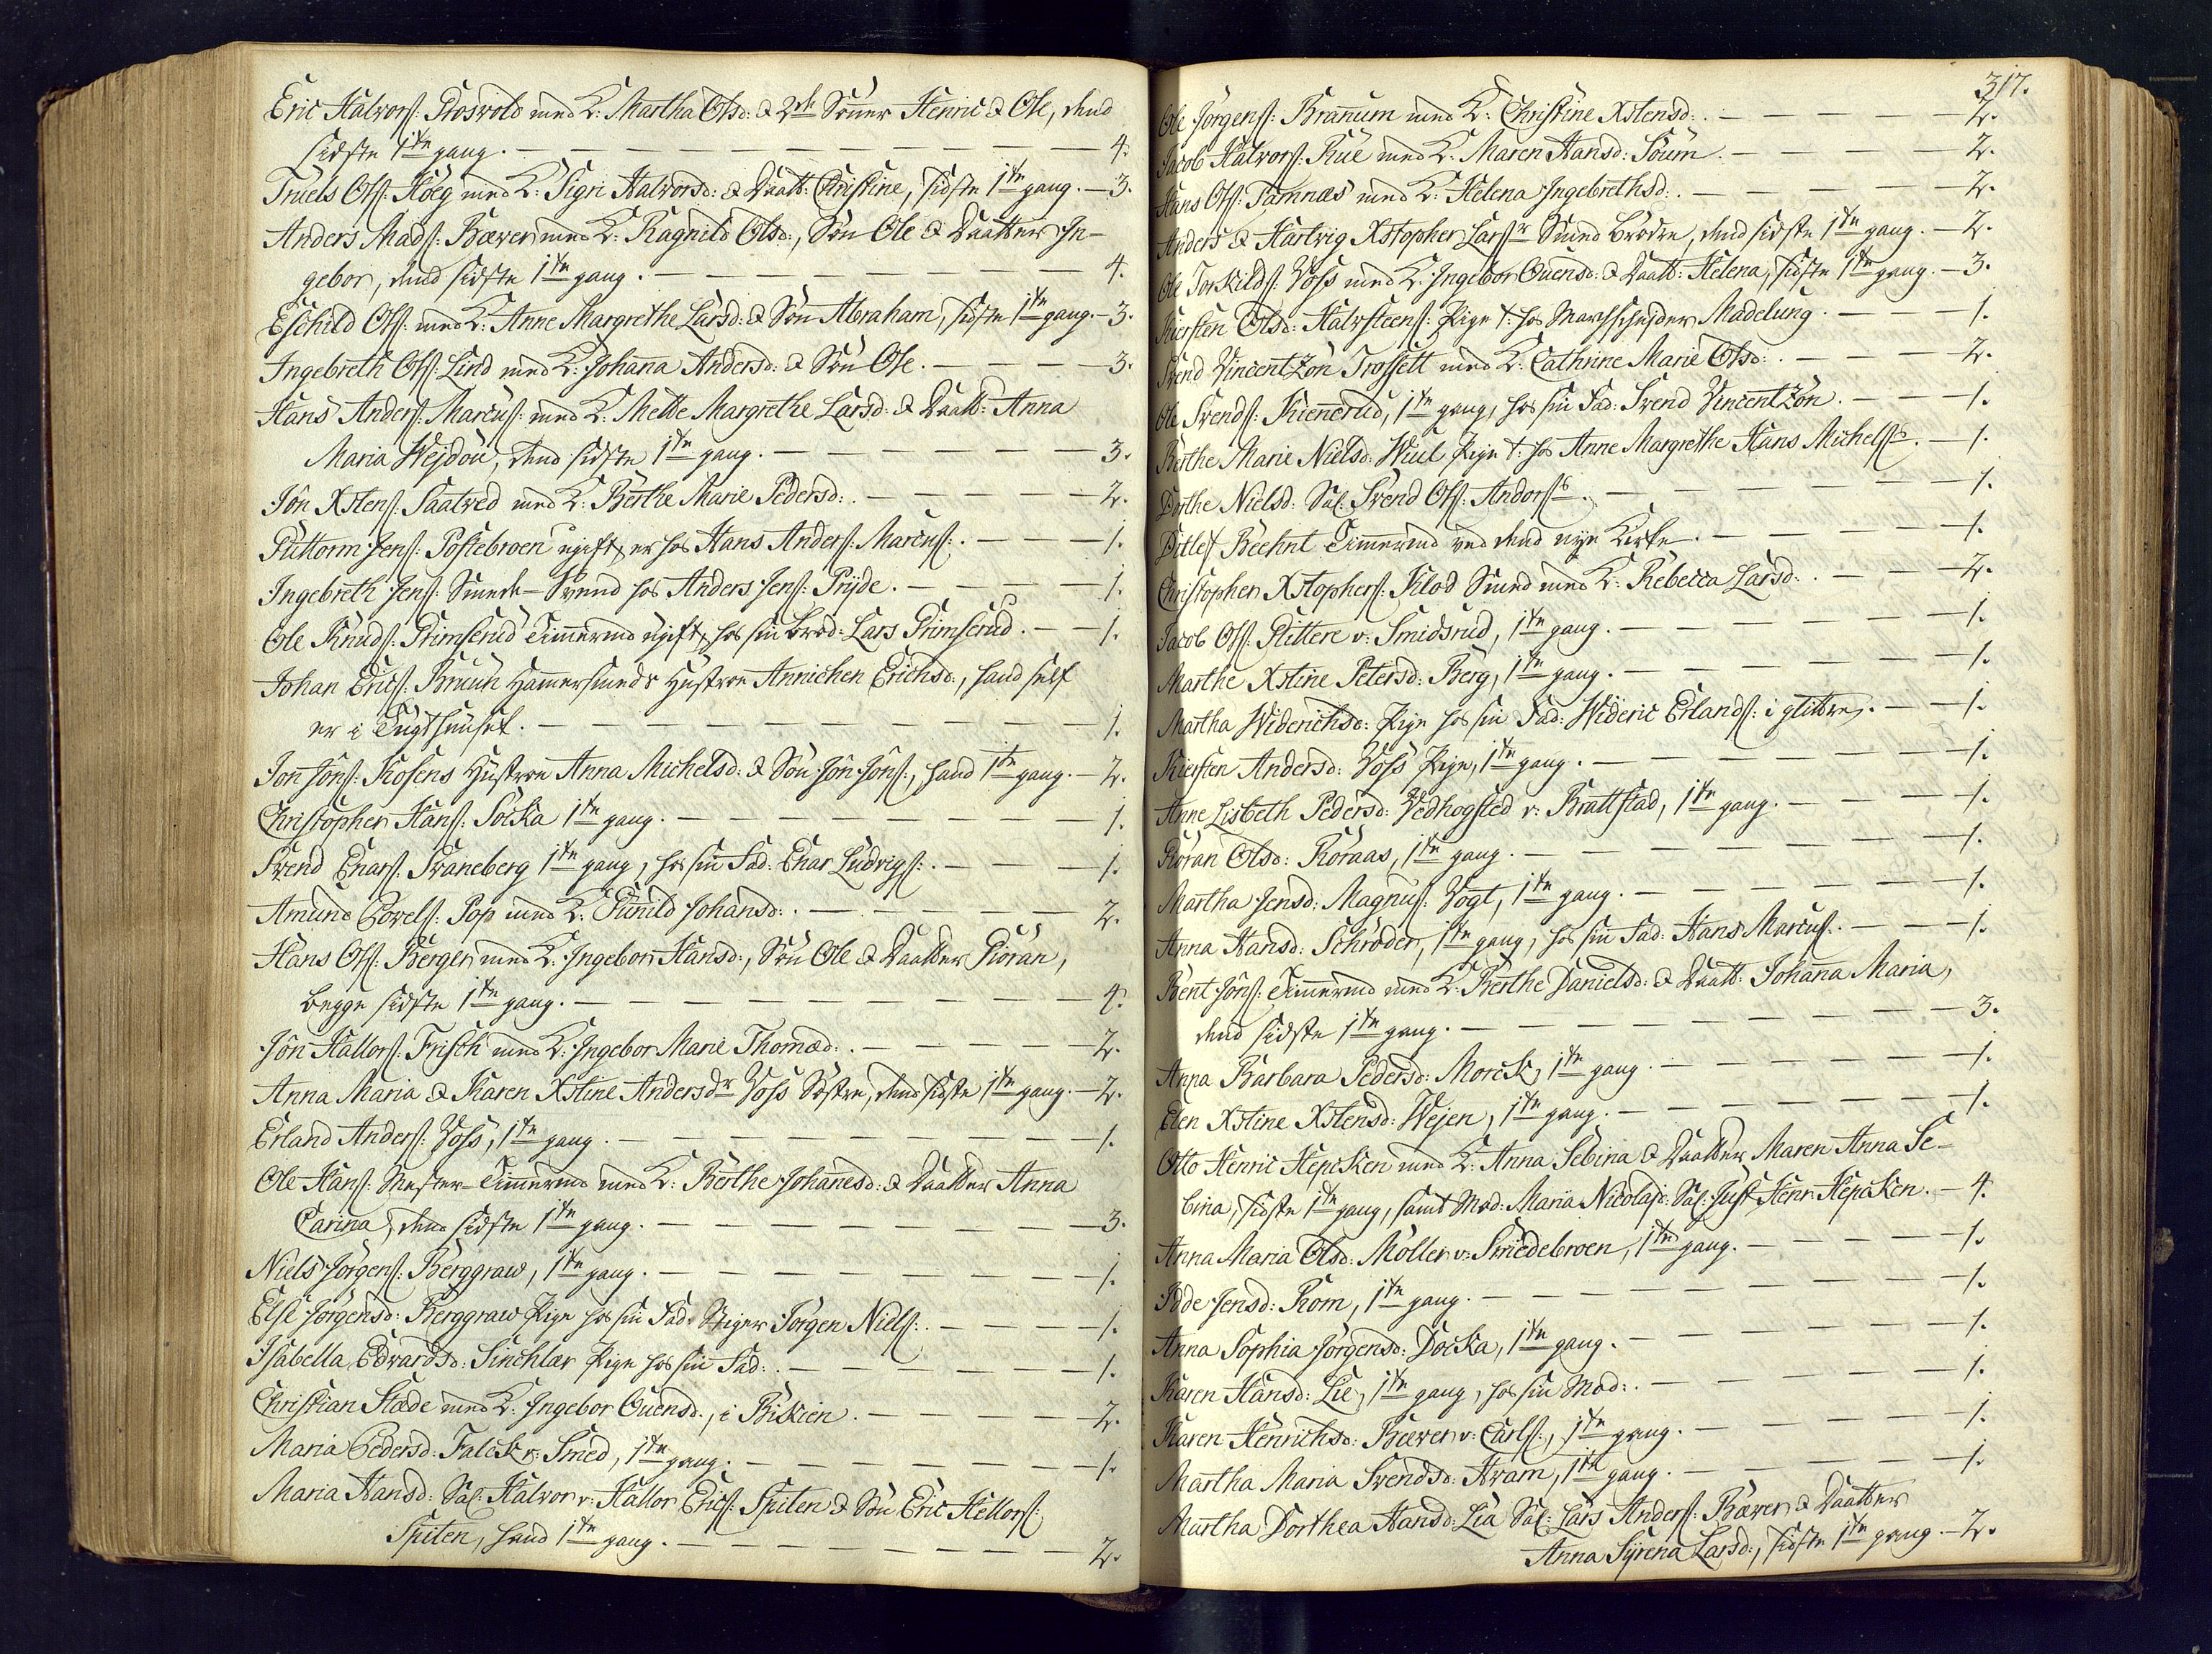 Eric Halvors: Grosvold med K: Martha Olsd: & 2de Sönner Henric & Ole, dend
sidste 1te gang. 4.
Truels Ols: Höeg med K: Sigri Halvorsd: & Daatt: Christine, sidste 1te gang. 3.
Anders Mads: Bæver med K: Ragnild Olsd:, Sön Ole & Daatter In-
gebor, dend sidste 1te gang. 4.
Eschild Ols: med K: Anne Margrethe Larsd: & Sön Abraham, sidste 1te gang. 3.
Ingebreth Ols: Lind med K: Johanna Andersd: & Sön Ole. 3.
Hans Anders: Marcus: med K: Mette Margrethe Larsd: & Daatt: Anna
Maria Wejdou, dend sidste 1te gang. 3.
Jön Xstens: Saatved med K: Berthe Marie Pedersd: 2.
Guttorm Jens: Postebroen ugift, er hos Hans Anders: Marcus: 1.
Ingebreth Jens: Smede-Svend hos Anders Jens: Pryde. 1.
Ole Knuds: Grimserud Timmermd ugift, hos sin Brod: Lars Grimserud. 1.
Johan Erics: Bruun Hamersmeds Hustroe Annichen Erichsd:, hand self
er i Tugthuuset. 1.
Jon Jöns: Kosens Hustroe Anna Michelsd: & Sön Jön Jöns:, hand 1te gang. 2.
Christopher Hans: Socka 1te gang. 1.
Svend Enars: Svaneberg 1te gang, hos sin Fad: Enar Ludvigs: 1.
Amund Povels: Pop med K: Gunild Johansd: 2.
Hans Ols: Bergen med K: Ingebor Hansd:, Sön Ole & Daatter Göran,
begge sidste 1te gang. 4.
Jön Hallors: Frisch med K: Ingebor Marie Thomæd: 2.
Anna Maria & Karen Xstine Andersdr Voss Söstre, dend sidste 1te gang. 2.
Erland Anders: Voss, 1te gang. 1.
Ole Hans: Mester-Timmermd med K: Berthe Johanesd: & Daatter Anna
Carina, dend sidste 1te gang. 3.
Niels Jörgens: Berggraw, 1te gang. 1.
Else Jörgensd: Berggraw Pige hos sin Fad: Stiger Jörgen Niels: 1.
Isabella Edvardsd: Sinchlar Pige hos sin Fad: 1.
Christian Stæde med K: Ingebor Ouensd:, i Biskien. 2.
Maria Pedersd: Falck v: Smed, 1te gang. 1.
Maria Hansd: Sal: Halvor v: Hallor Erics: Spiten & Sön Eric Hellors:
Spiten, hand 1te gang. 2.
317.
Ole Jörgens: Branum med K: Christine Xstensd: 2.
Jacob Halvors: Rue med K: Maren Hansd: Soum. 2.
Hans Ols: Tamnæs med K: Helena Ingebrethsd: 2.
Anders & Hartvig Xstopher Larssr Smed Brödre, dend sidste 1te gang. 2.
Ole Torkilds: Voss med K: Ingebor Ouensd: & Daatt: Helena, sidste 1te gang. 3.
Kiersten Olsd: Halvsteens: Pige t: hos Marchscheider Madelung. 1.
Svend Vincentzön Trossett med K: Cathrine Marie Olsd: 2.
Ole Svends: Kiennerud, 1te gang, hos sin Fad: Svend Vincentzön. 1.
Berthe Marie Nielsd: Wiul Pige t: hos Anne Margrethe Hans Michelss. 1.
Dorthe Nielsd: Sal: Svend Ols: Andorss. 1.
Ditlef Beehnt Timmermd ved dend nye Kirke. 1.
Christopher Xstophers: Klod Smed med K: Rebecca Larsd: 2.
Jacob Ols: Glittere v: Smidsrud, 1te gang. 1.
Marthe Xstine Petersd: Berg, 1te gang. 1.
Martha Widerichsd: Pige hos sin Fad: Wideric Erlands: i glittre. 1.
Kiersten Andersd: Voss Pige, 1te gang. 1.
Anne Lisbeth Pedersd: Vedhogsted v: Brattstad, 1te gang. 1.
Göran Olsd: Röraas, 1te gang. 1.
Martha Jensd: Magnus: Vogt, 1te gang. 1.
Anna Hansd: Schröder, 1te gang, hos sin Fad: Hans Marcus: 1.
Bent Jöns: Timmermd med K: Berthe Danielsd: & Daatt: Johana Maria,
dend sidste 1te gang. 3.
Anna Barbara Pedersd: Morck, 1te gang. 1.
Elen Xstine Xstensd: Wejen, 1te gang. 1.
Otto Henric Hepcken med K: Anna Sebina & Daatter Maren Anna Se-
bina, sidste 1te gang, samt Mod: Maria Nicolajd: Sal: Just Henr: Hepcken. 4.
Anna Maria Olsd: Möller v: Smedebroen, 1te gang. 1.
Bode Jensd: Rom, 1te gang. 1.
Anna Sophia Jörgensd: Docka, 1te gang. 1.
Karen Hansd: Lie, 1te gang, hos sin Mod: 1.
Karen Henrichsd: Bæver v: Carls:, 1te gang. 1.
Martha Maria Svendsd: Hvam, 1te gang. 1.
Martha Dorthea Hansd: Lia Sal: Lars Anders: Bæver & Daatter
Anna Syrena Larsd:, sidste 1te gang. 2.